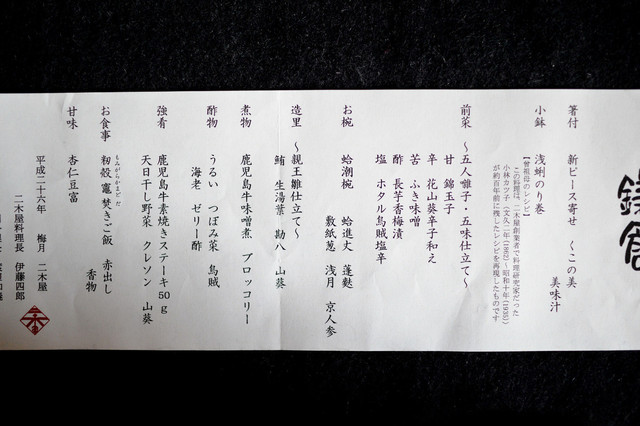 箸付　新ピース寄せ　くこの美
美味汁
小鉢　浅蜊のり巻
【曾祖母のレシピ】
この料理は、二木屋創業者で料理研究家だった
小林カツ子(文久二年(1862)~昭和十年(1935))
が約百年前に残したレシピを再現したものです
前菜　~五人囃子・五味仕立て~
甘　錦玉子
辛　花山葵辛子和え
苦　ふき味噌
酸　長芋香梅漬
塩　ホタル烏賊塩辛
お椀　蛤潮椀　蛤進丈　蓬麩
敷紙葱　浅月　京人参
造里　~親王雛仕立て~
鮪　生湯葉　勘八　山葵
煮物　鹿児島牛味噌煮　ブロッコリー
酢物　うるい　つぼみ菜　烏賊
海老　ゼリー酢
強肴　鹿児島牛素焼きステーキ50g
天日干し野菜　クレソン　山葵
お食事　籾殻竈焚きご飯　赤出し
もみがらかまどだ
香物
甘味　杏仁豆富
平成二十六年　梅月　二木屋
二木屋料理長　伊藤四郎